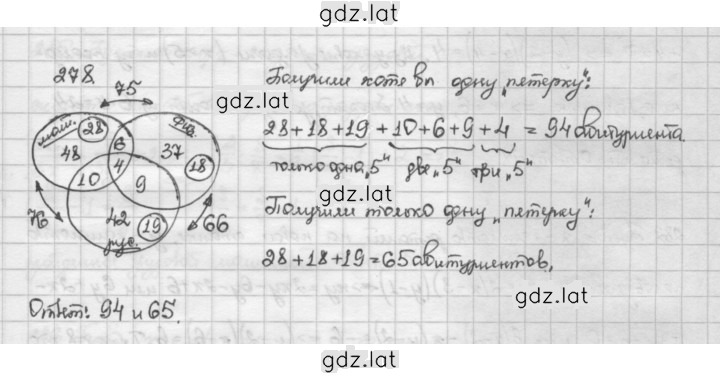 gdz.lat
278.
75
Получили хотя бы одну „пятерку“:
gdz.lat
мат. 28 6 физ.
48 4 37 18
10 9
28+18+19+10+6+9+4=94 абитуриента.
только одна „5“ две „5“ три „5“
76 42 19 66
рус.
Получили только одну „пятерку“:
gdz.lat
28+18+19=65 абитуриентов.
gdz.lat
Ответ: 94 и 65.
gdz.lat